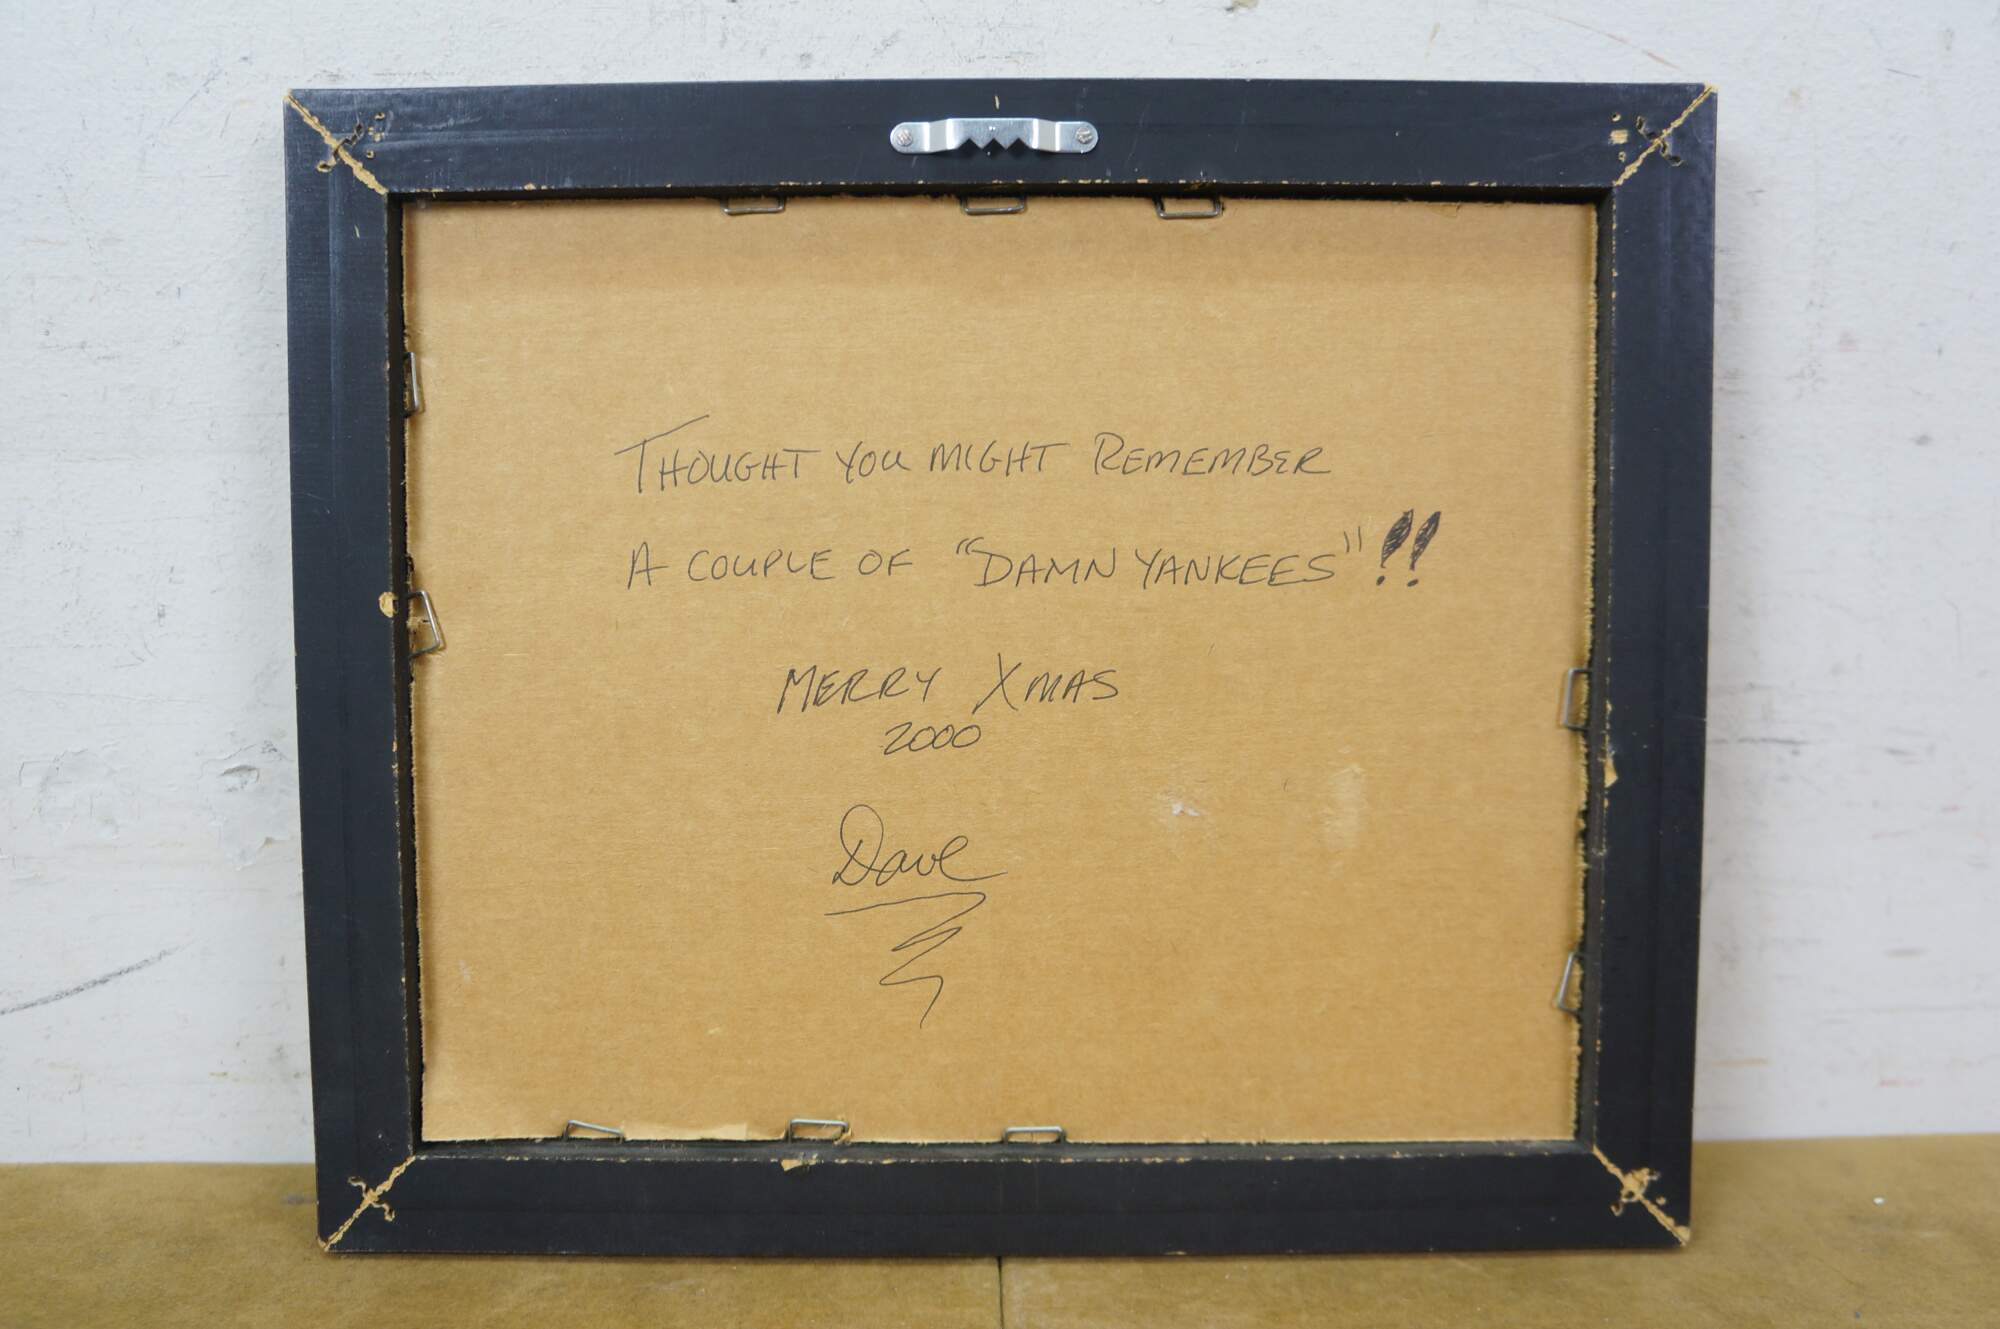 THOUGHT YOU MIGHT REMEMBER
A COUPLE OF "DAMN YANKEES"!!
MERRY XMAS
2000
Dave